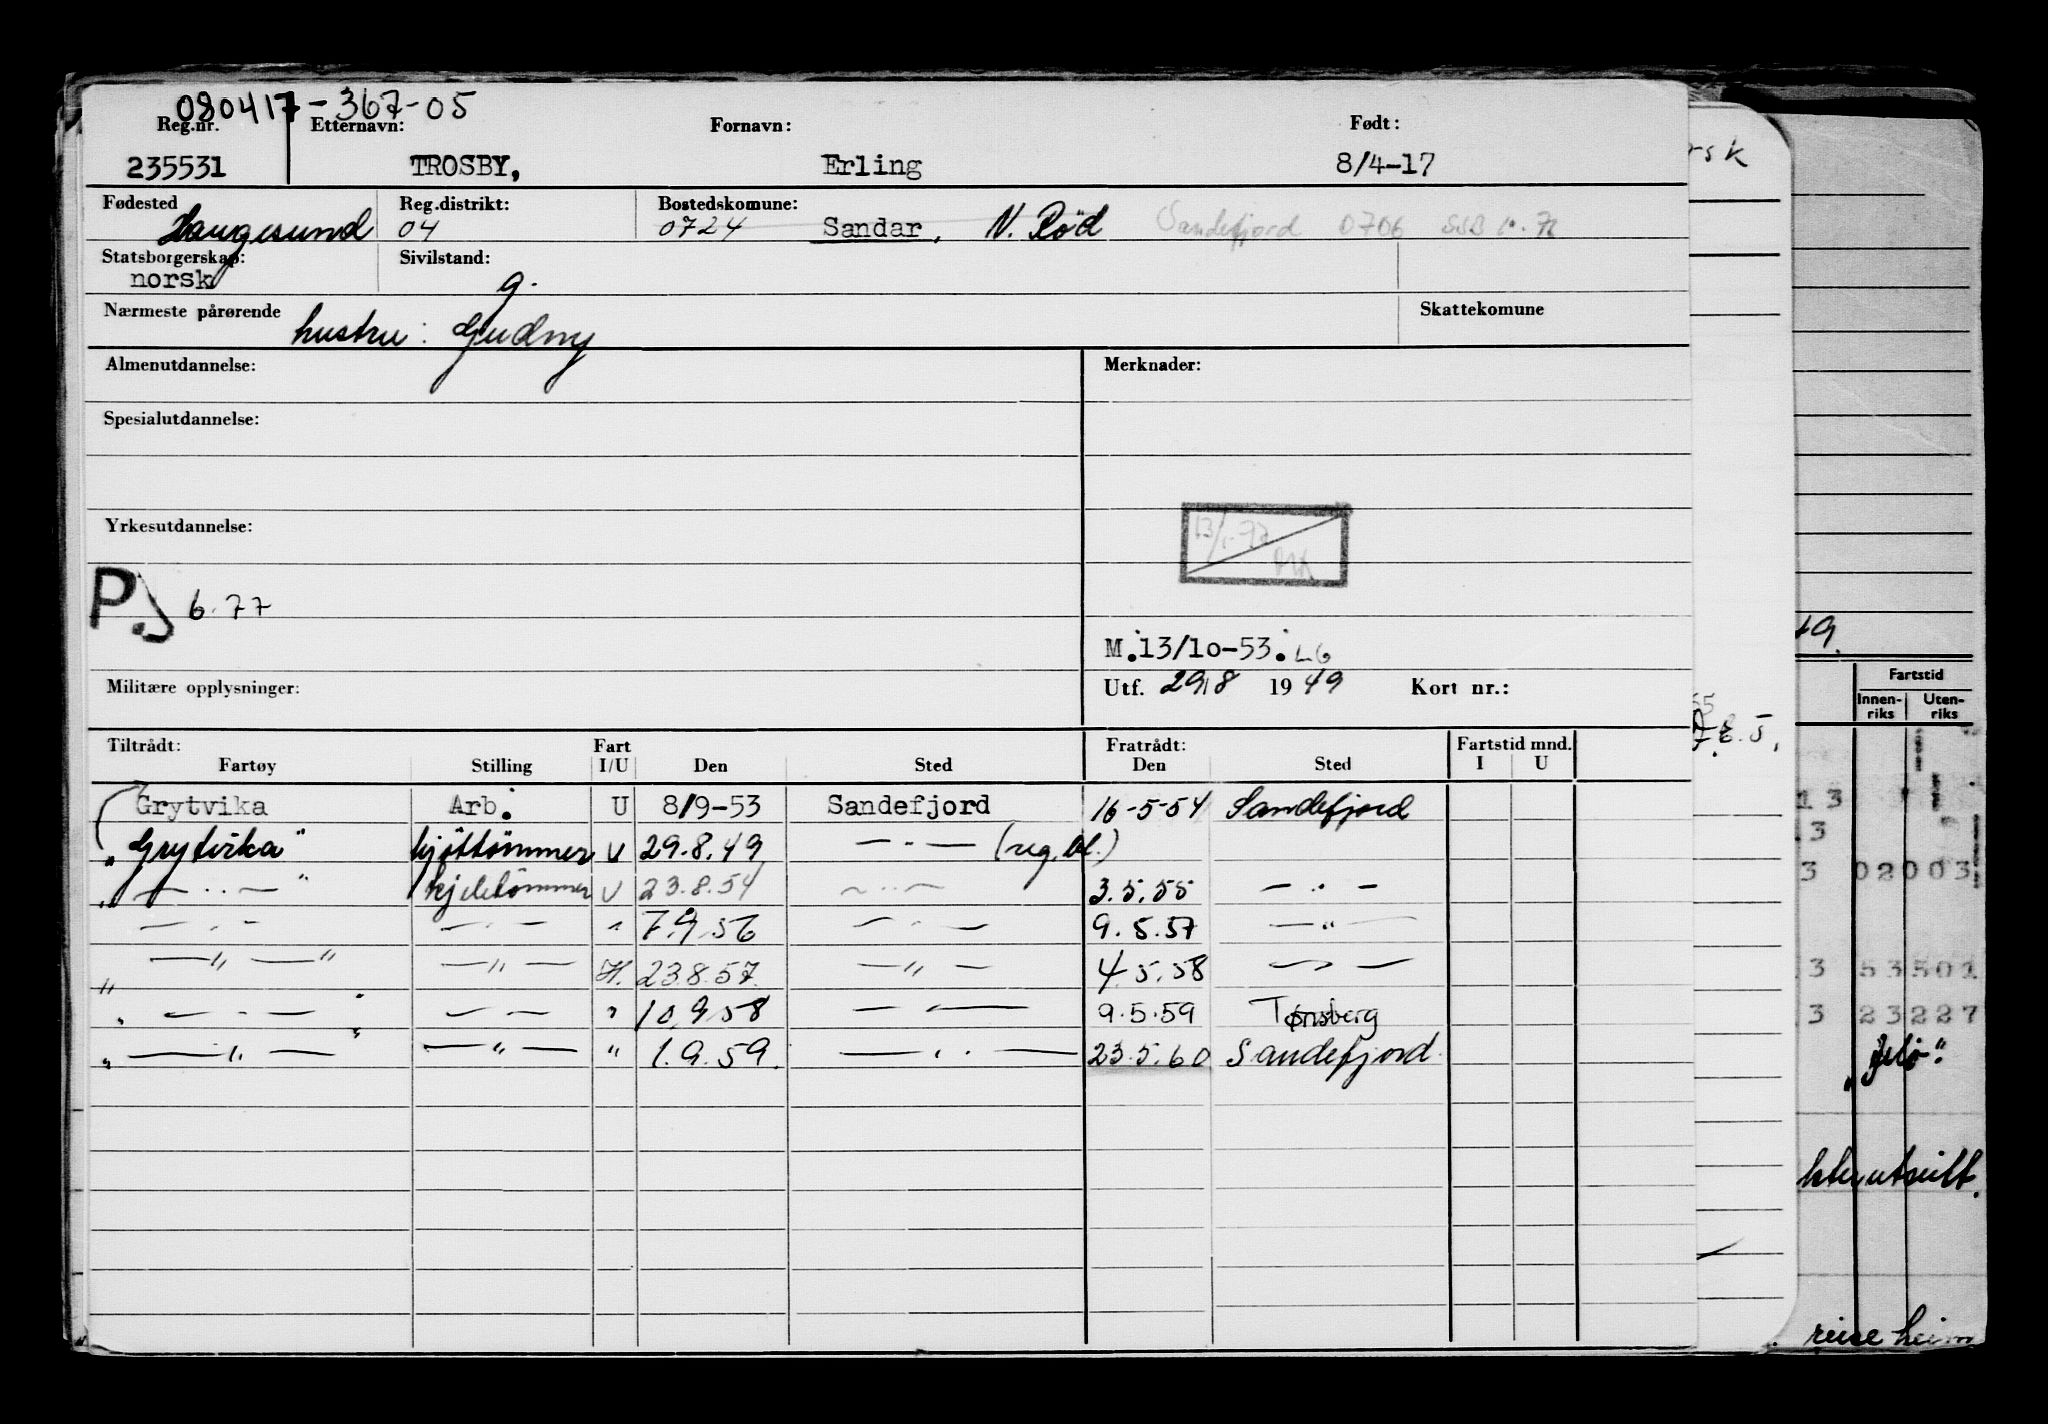 080417-367-05
Reg.nr. Etternavn: Fornavn: Født:
235531 TROSBY, Erling 8/4-17
Fødested Reg.distrikt: Bostedskomune:
Haugesund 04 0724 Sandar, N. Rød Sandefjord 0706 SSB
Statsborgerskap: Sivilstand:
norsk g.
Nærmeste pårørende Skattekomune
hustru: Gudny
Almenutdannelse: Merknader:
Spesialutdannelse:
Yrkesutdannelse:
P.J 6.77
M.13/10-53. LG
Militære opplysninger: Utf. 29/8 1949 Kort nr.:
Tiltrådt: Fart Fratrådt: Fartstid mnd.
Fartøy Stilling I/U Den Sted Den Sted I U
Grytvika Arb. U 8/9-53 Sandefjord 16-5-54 Sandefjord
"Grytvika" kjøttømmer U 29.8.49 — " — (reg. bl.)
" — " — " kjeletømmer U 23.8.54 — " — 3.5.55 — " —
— " — — " — " 7.9.56 — " — 9.5.57 — " —
" — " — " — " — H. 23.8.57. — " — 4.5.58 — " —
" — " — " — " — " 10.9.58 — " — 9.5.59 Tønsberg
" — " — " — " — " 1.9.59. — " — 23.5.60 Sandefjord.
Fartstid
Innen-riks Uten-riks
13
3
3 02003
3 53501
3 23227
reise heim